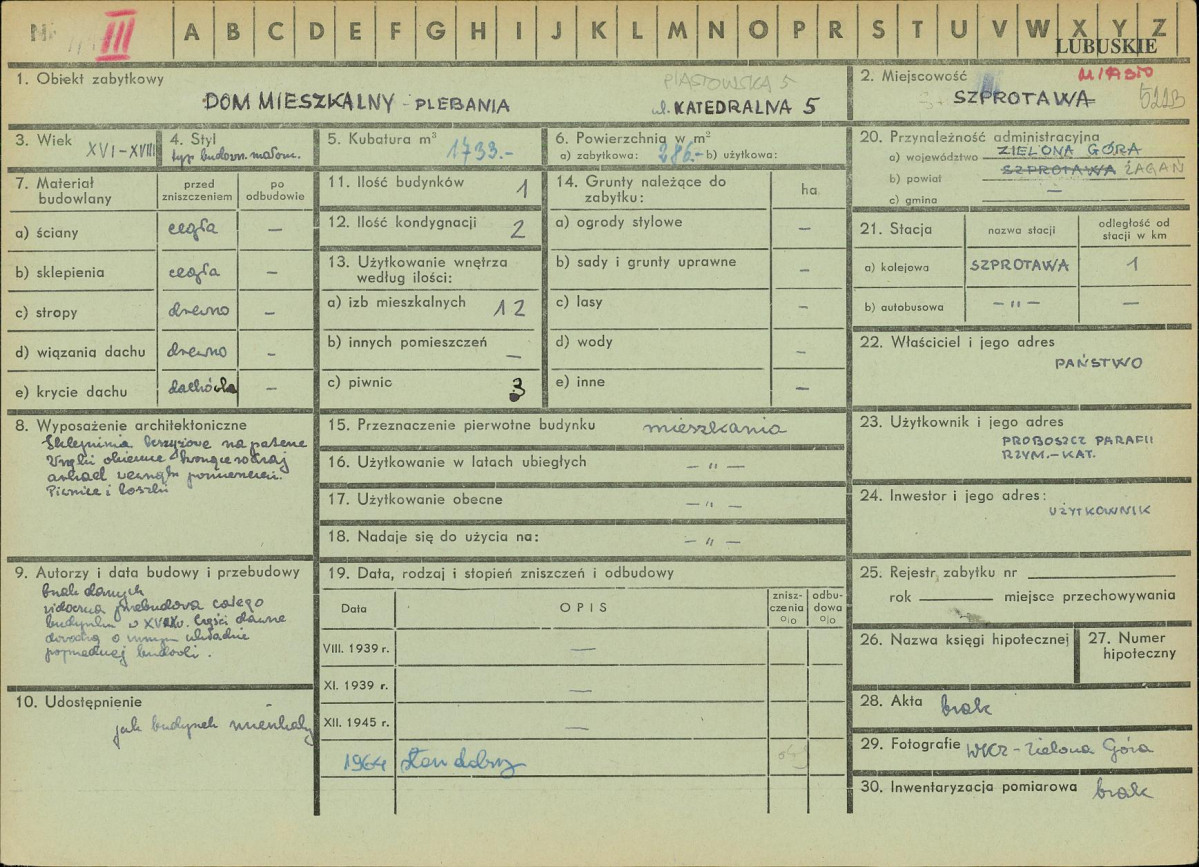 Nr III A B C D E F G H I J K L M N O P R S T U V W X Y Z
LUBUSKIE
1. Obiekt zabytkowy
PIASTOWSKA 5
DOM MIESZKALNY - PLEBANIA ul. KATEDRALNA 5
2. Miejscowość MIASTO
SZPROTAWA 522B
3. Wiek XVI-XVIII
4. Styl
typ budown. małom.
5. Kubatura m³ 1733.-
6. Powierzchnia w m²
a) zabytkowa: 286.- b) użytkowa:
20. Przynależność administracyjna
a) województwo ZIELONA GÓRA
b) powiat SZPROTAWA ŻAGAŃ
c) gmina —
7. Materiał budowlany
przed zniszczeniem
po odbudowie
a) ściany cegła —
b) sklepienia cegła —
c) stropy drewno —
d) wiązania dachu drewno —
e) krycie dachu dachówka —
11. Ilość budynków 1
12. Ilość kondygnacji 2
13. Użytkowanie wnętrza
według ilości:
a) izb mieszkalnych 12
b) innych pomieszczeń —
c) piwnic 3
14. Grunty należące do
zabytku: ha
a) ogrody stylowe —
b) sady i grunty uprawne —
c) lasy —
d) wody —
e) inne —
21. Stacja
nazwa stacji
odległość od
stacji w km
a) kolejowa SZPROTAWA 1
b) autobusowa — " — —
22. Właściciel i jego adres
PAŃSTWO
8. Wyposażenie architektoniczne
Sklepienia krzyżowe na parterze
arkad wewnątrz pomieszczeń.
Piwnice i loszki
15. Przeznaczenie pierwotne budynku mieszkania
16. Użytkowanie w latach ubiegłych — " —
17. Użytkowanie obecne — " —
18. Nadaje się do użycia na: — " —
23. Użytkownik i jego adres
PROBOSZCZ PARAFII
RZYM.-KAT.
24. Inwestor i jego adres:
UŻYTKOWNIK
9. Autorzy i data budowy i przebudowy
brak danych
widoczna przebudowa całego
budynku w Części dawne
dowodzą o innym układzie
poprzedniej budowli.
19. Data, rodzaj i stopień zniszczeń i odbudowy
Data OPIS
znisz-
czenia
o|o
odbu-
dowa
o|o
VIII. 1939 r. —
XI. 1939 r. —
XII. 1945 r. —
1964 stan dobry
25. Rejestr zabytku nr
rok miejsce przechowywania
26. Nazwa księgi hipotecznej
27. Numer
hipoteczny
10. Udostępnienie
jak budynek mieszkalny
28. Akta brak
29. Fotografie WKZ - Zielona Góra
30. Inwentaryzacja pomiarowa brak